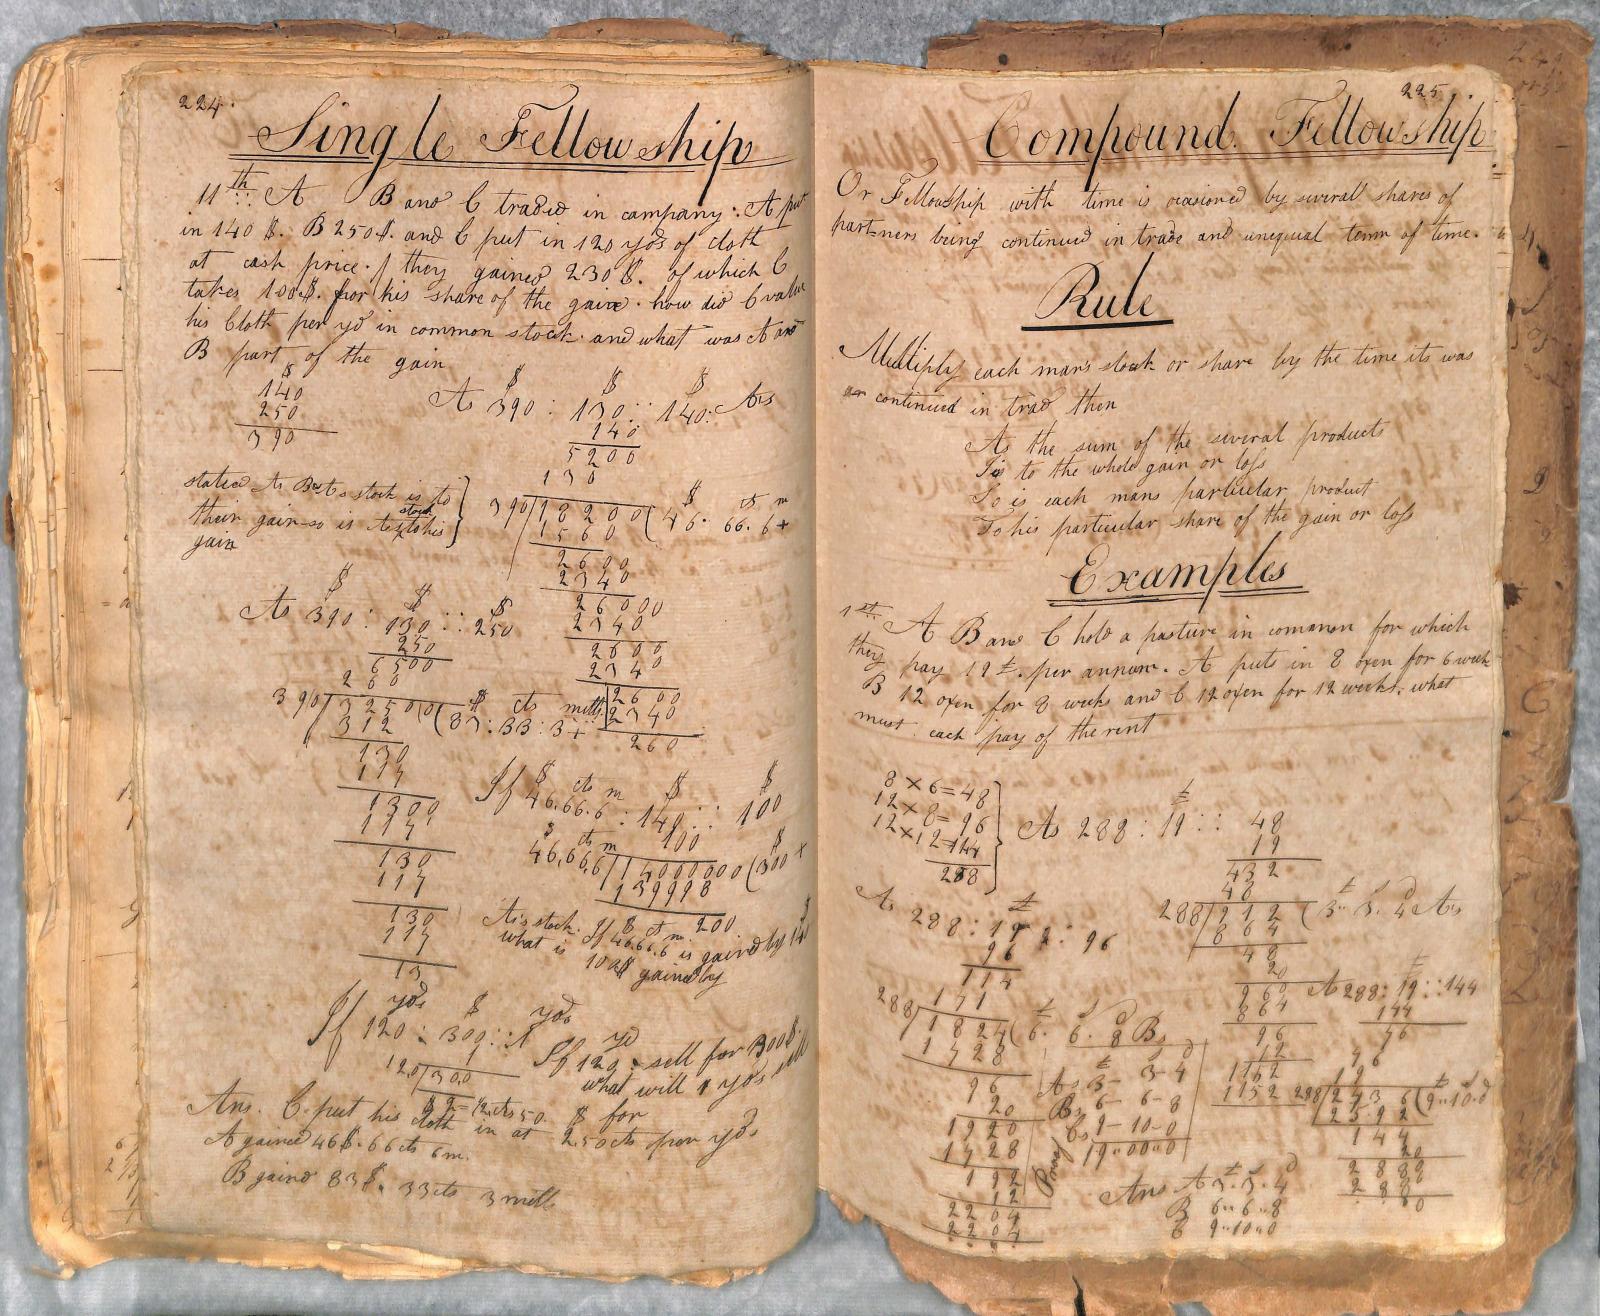 224.
Single Fellowship
11th A B and C traded in company: A put
in 140 $. B 250$. and C put in 120 yds of cloth
at cash price. they gained 230 $. of which C
takes 100$. for his share of the gain. how did C value
his Cloth per yd in common stock. and what was A and
B part of the gain
$
140
250
390
$ $ $
As 390 : 130 :: 140: As
140
5200
130
390)18200( 46. 66. 6+
$ cts m
1560
2600
2340
26000
2340
2600
2340
2600
2340
260
stated As B & As stock is to
their gain so is As stock to his
gain
$ $ $
As 390 : 130 :: 250
250
6500
260
390)32500(83 : 33 : 3+
$ cts mills
312
130
117
1300
117
130
117
130
117
13
$ cts m $ $
If 46.66.6 : 140 :: 100
100
$ cts m $
46,66,6)14000000(300+
139998
200
As stock. If $ ct m.
46.66.6 is gained by 14
what is 100$ gained by
yds $ yds
If 120 : 300 :: 1
1
120)300
$2=1/2 cts 50.
yd
If 120 sell for 300$.
what will 1 yds sell
Ans. C. put his cloth in at 2.50cts per yds
$ for
A gained 46$. 66cts 6m.
B gaind 83$. 33cts 3 mills
225
Compound Fellowship
Or Fellowship with time is ocasioned by several shares of
partners being continued in trade and unequal term of time.
Rule
Multiply each mans stock or share by the time its was
continued in trad then
As the sum of the several products
Is to the whole gain or loss
So is each mans particular product
To his particular share of the gain or loss
Examples
1st. A B and C hold a pasture in common for which
they pay 19 £. per annum. A puts in 8 oxen for 6 week
B 12 oxen for 8 weeks and C 12 oxen for 12 weeks. what
must each pay of the rent
8 × 6 = 48
12 × 8 = 96
12 × 12 = 144
288
£
As 288 : 19 :: 48
19
432
48
£ s d
288)912( 3.. 3. 4 As
864
48
20
960
864
96
12
1152
1152
£
As 288 : 19 : : 96
96
114
171
£ s d
288)1824(6. 6. 8 Bs
1728
96
20
1920
1728
192
12
2304
2304
£
As 288 : 19 : : 144
144
76
76
19
£ s d
288)2736(9..10.0
2592
144
20
2880
2880
0
£ s d
As 3- 3-4
Bs 6- 6-8
Cs 9-10-0
19..00..0
£ s d
Ans A 3. 3. 4
B 6.. 6..8
C 9..10..0